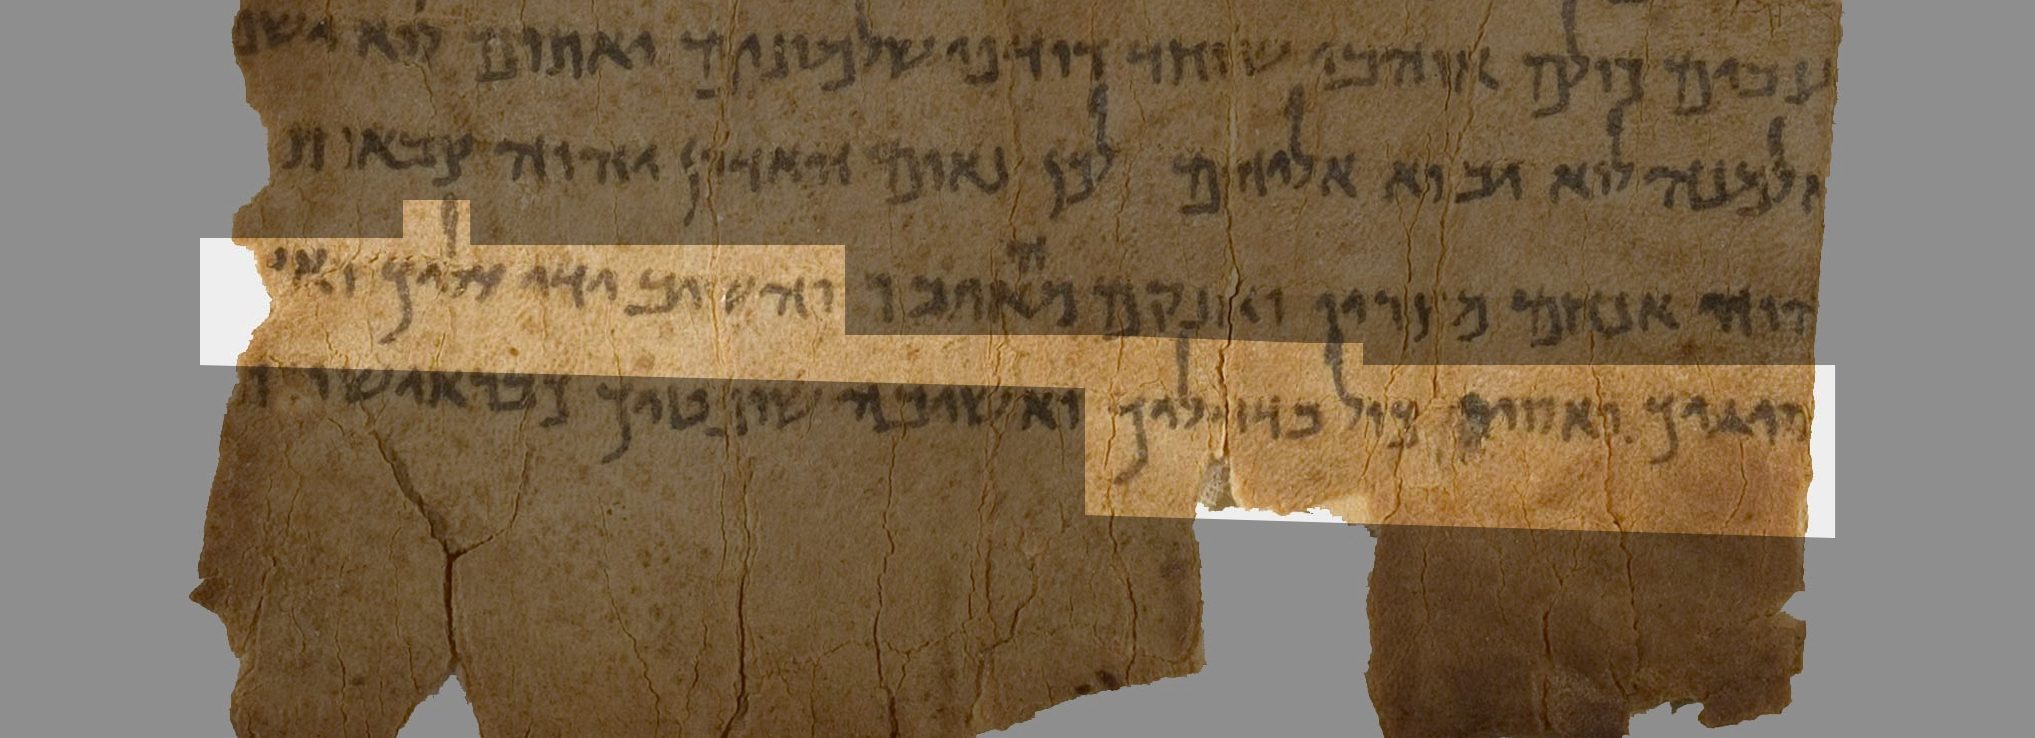 גנבים כולם אוהבי שוחד רודפי שלמונים יתום לוא ישפ
אלמנה לוא יבוא אליהם לכן נאום האדון יהוה צבאות
הוה אנחם מצריו ואנקם מאויבו והשיב ידי עליך ואצ
סיגיך ואסיר כול בדיליך ואשיבה שופטיך כבראישו